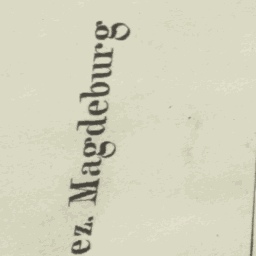 ez. Magdeburg